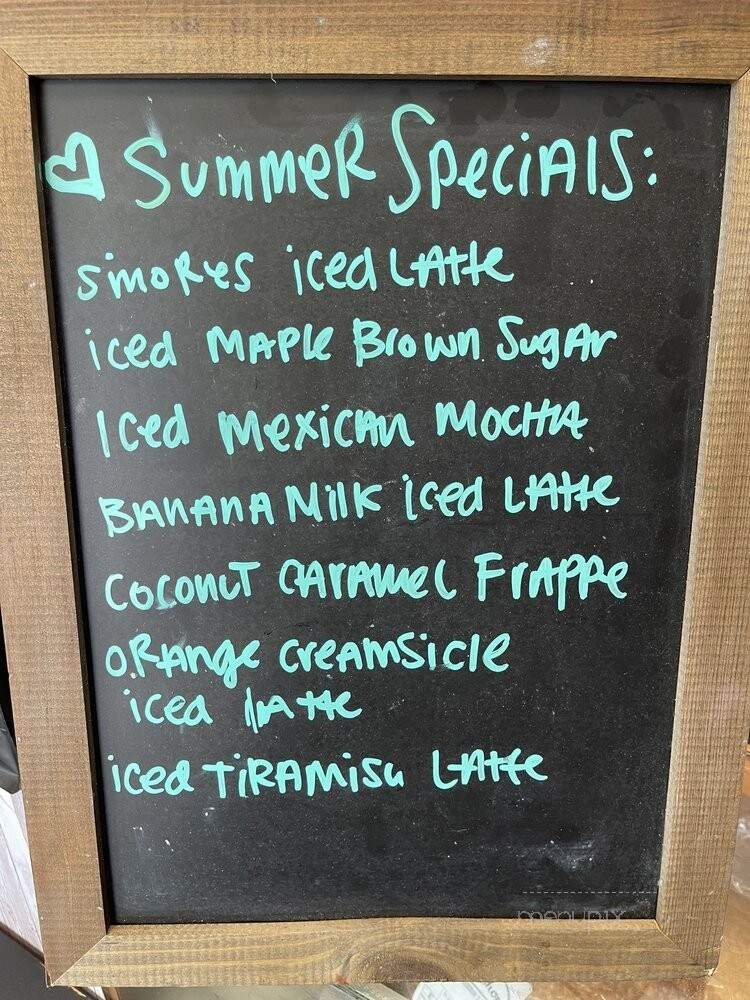 ♡ Summer Specials:
s'mores iced Latte
iced Maple Brown Sugar
Iced Mexican Mocha
Banana Milk iced Latte
Coconut Caramel Frappe
Orange Creamsicle
iced latte
iced Tiramisu Latte
menupix